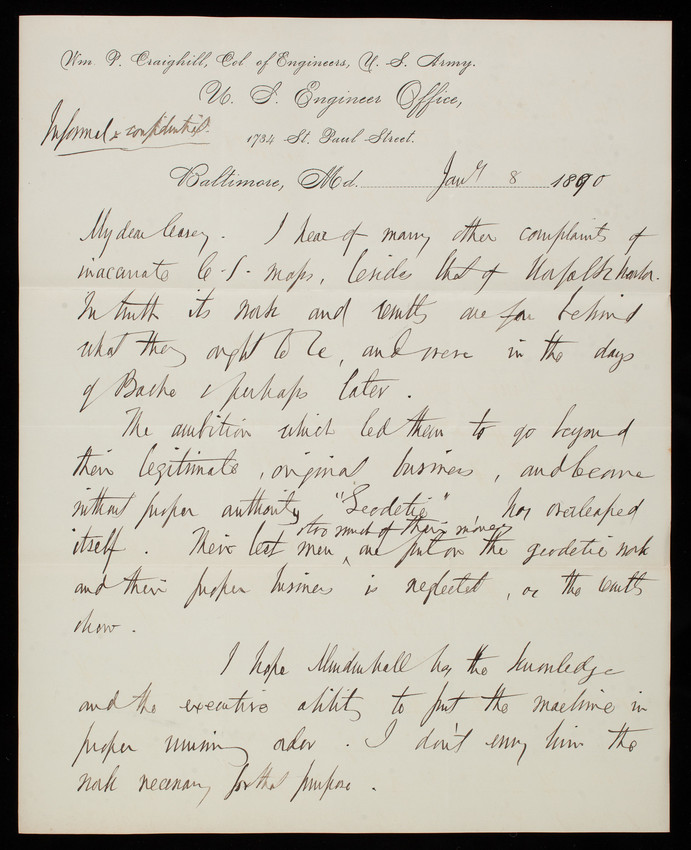 Wm. P. Craighill, Col of Engineers, U. S. Army.
U. S. Engineer Office,
Informal & confidential.
1734 St. Paul Street.
Baltimore, Md. Jany 8 1890
My dear Casey. I hear of many other complaints of
inaccurate C.S. maps, besides that of Norfolk harbor.
In truth its work and results are far behind
what they ought to be, and were in the days
of Bache & perhaps later.
The ambition which led them to go beyond
their legitimate, original business, and become
without proper authority "Geodetic", has overleaped
& too much of their money
itself. Their best men are put on the geodetic work
and their proper business is neglected, as the results
show.
I hope Mendenhall has the knowledge
and the executive ability to put the machine in
proper running order. I don't envy him the
work necessary for that purpose.